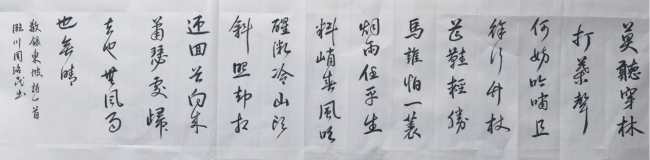 莫聽穿林
打葉聲
何妨吟嘯且
徐行竹杖
芒鞋輕勝
馬誰怕一蓑
烟雨任平生
料峭春風吹
醒微冷山頭
斜照却相
迎回首向來
蕭瑟處歸
去也無風雨
也無晴
敬錄東坡詩一首
臨川周